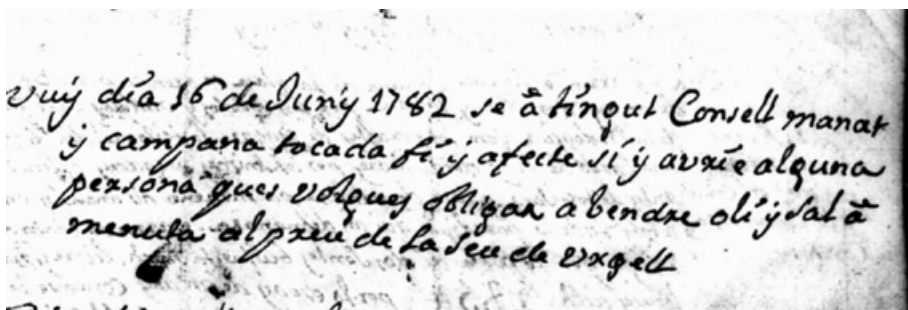 vuý dia 16 de Juný 1782 se â tingut Consell manat
ý campana tocada fi ý afecte si ý avrie alguna
persona ques volgues obligar a bendre oli ý sal â
menuda al preu de la Seu de Urgell